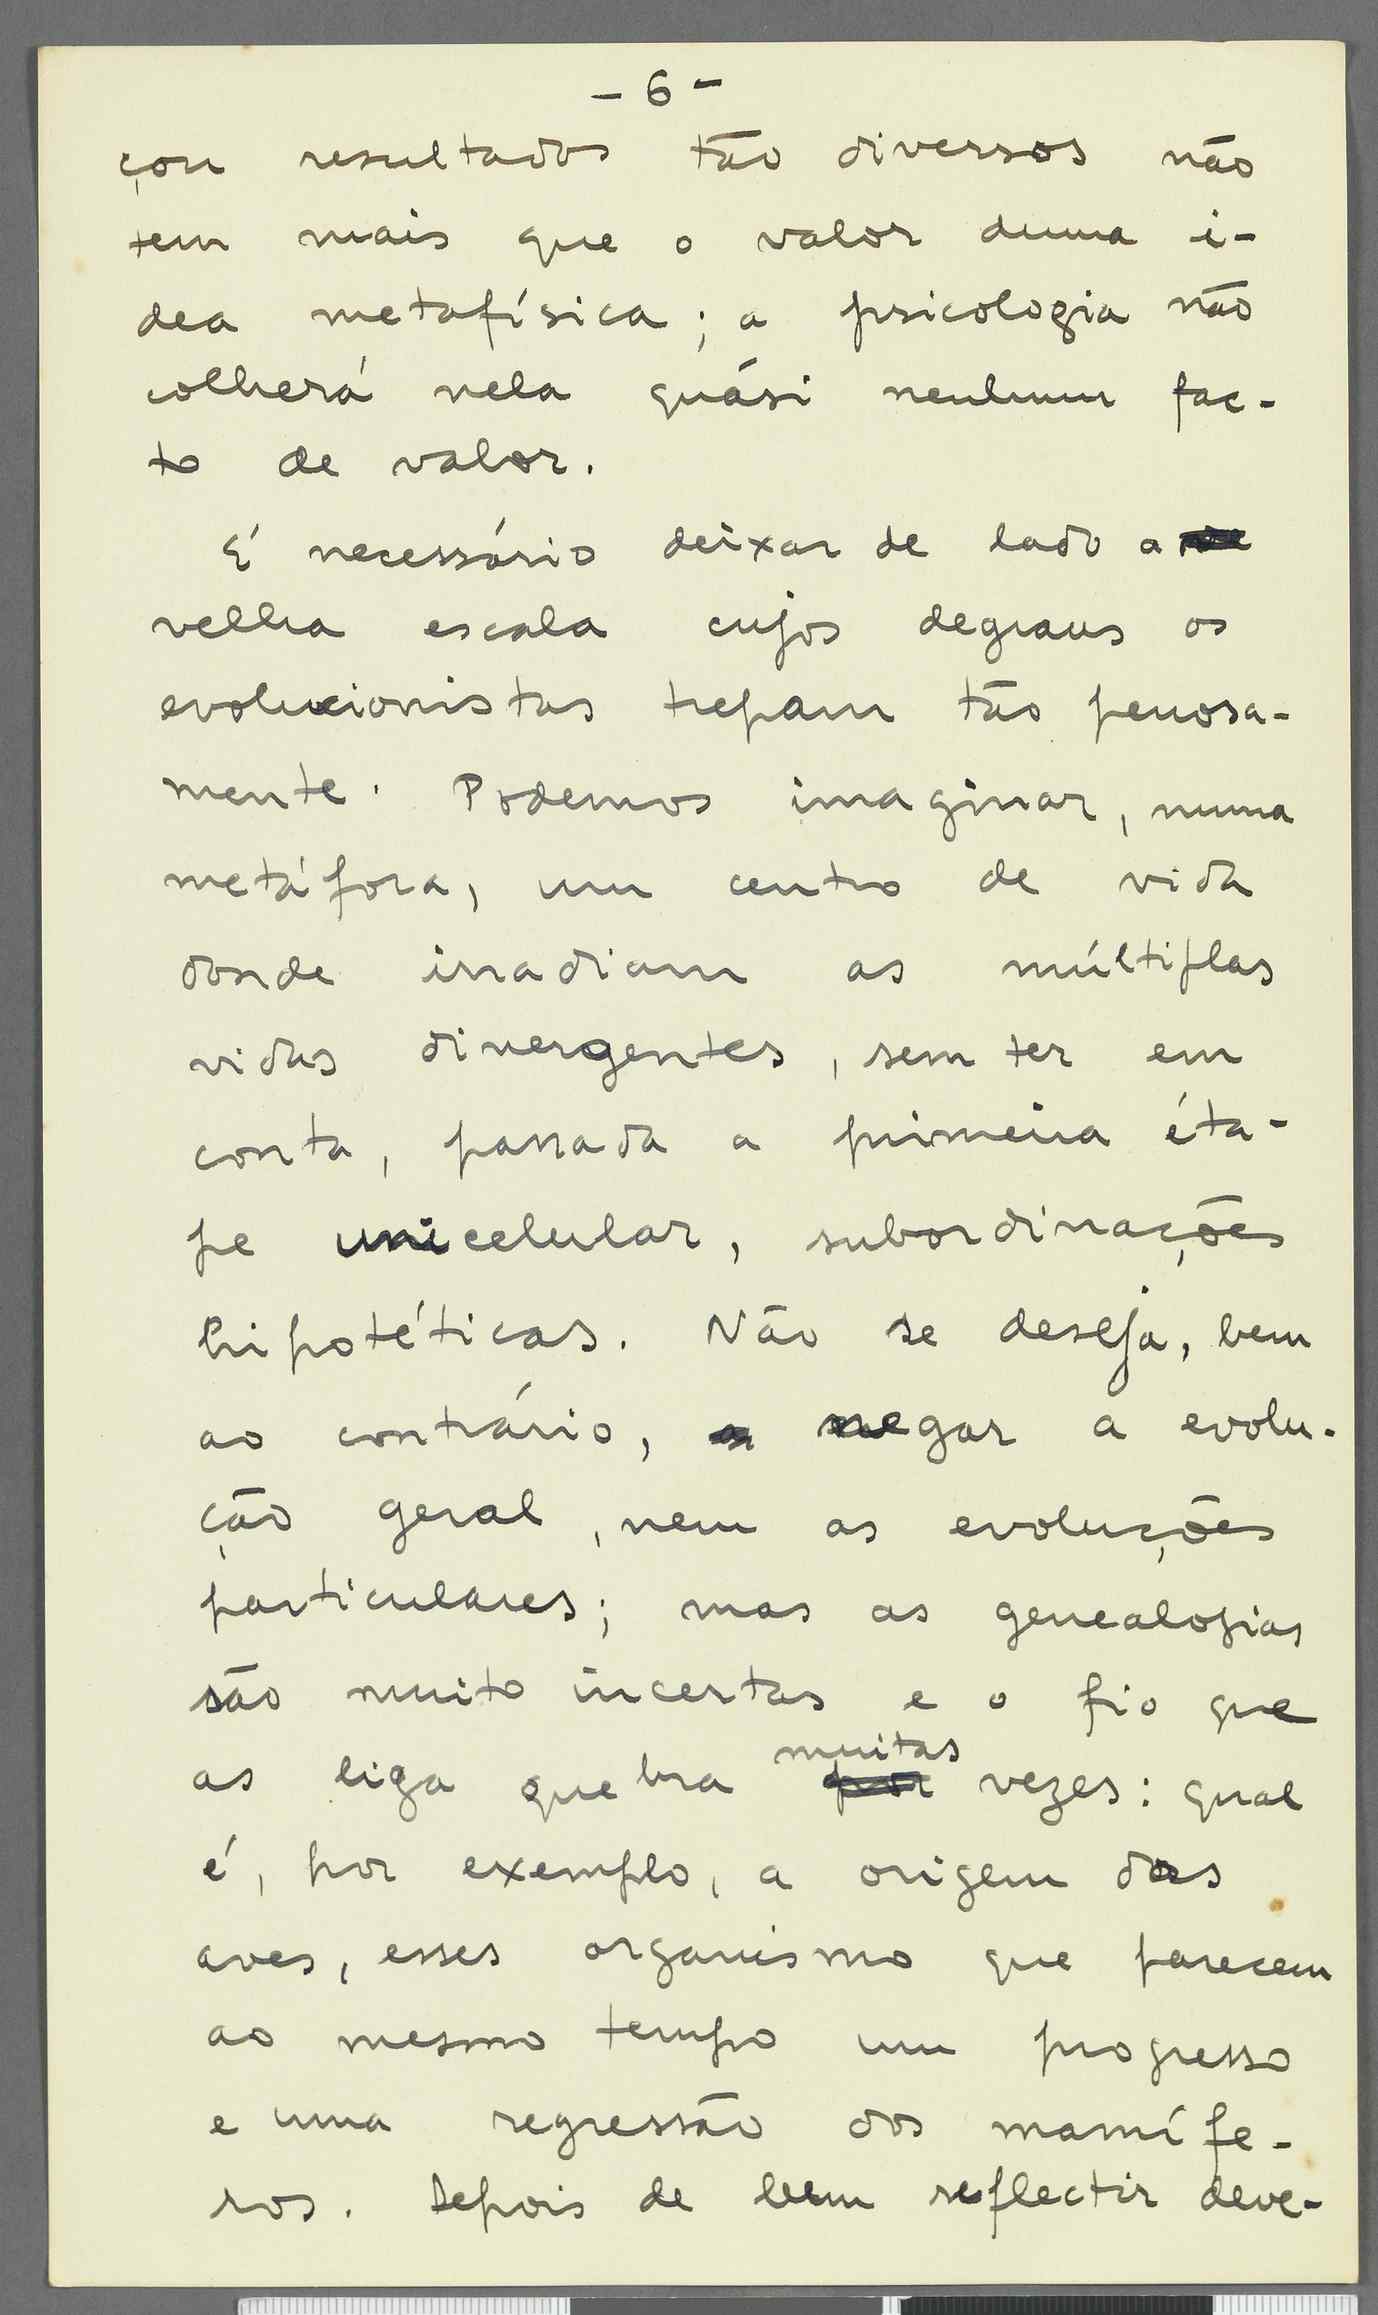 - 6 -
çou resultados tão diversos não
tem mais que o valor duma i-
dea metafísica; a psicologia não
colherá nela quási nenhum fac-
to de valor.
É necessário deixar de lado a
velha escala cujos degraus os
evolucionistas trepam tão penosa-
mente. Podemos imaginar, numa
metáfora, um centro de vida
donde irradiam as múltiplas
vidas divergentes, sem ter em
conta, passada a primeira éta-
pe unicelular, subordinações
hipotéticas. Não se deseja, bem
ao contrário, negar a evolu-
ção geral, nem as evoluções
particulares; mas as genealogias
são muito incertas e o fio que
as liga quebra muitas por vezes: qual
é, por exemplo, a origem das
aves, esses organismo que parecem
ao mesmo tempo um progresso
e uma regressão dos mamífe-
ros. Depois de bem reflectir deve-